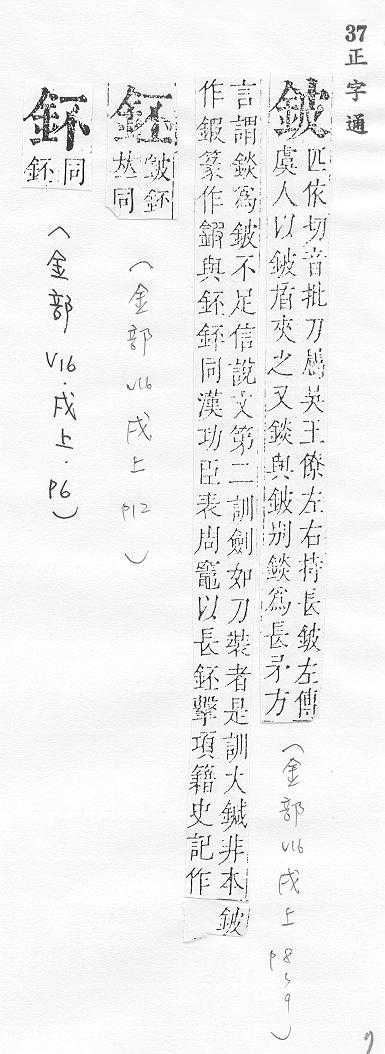 37 正字通
鈹
匹依切音批刀吳王僚左右持長鈹左傳
虞人以鈹盾夾之又錟與鈹別錟爲長矛方
(金部 V16 戌上 P8~9)
言謂錟爲鈹不足信說文第二訓劍如刀裝者是訓大鍼非本鈹
作鍜篆作與鉟鈈同漢功臣表周竈以長鉟擊項籍史記作
鉟
鈹鈈
𠀤同
(金部 V16 戌上 P12)
鈈
同
鉟
(金部 V16.戌上.P6)